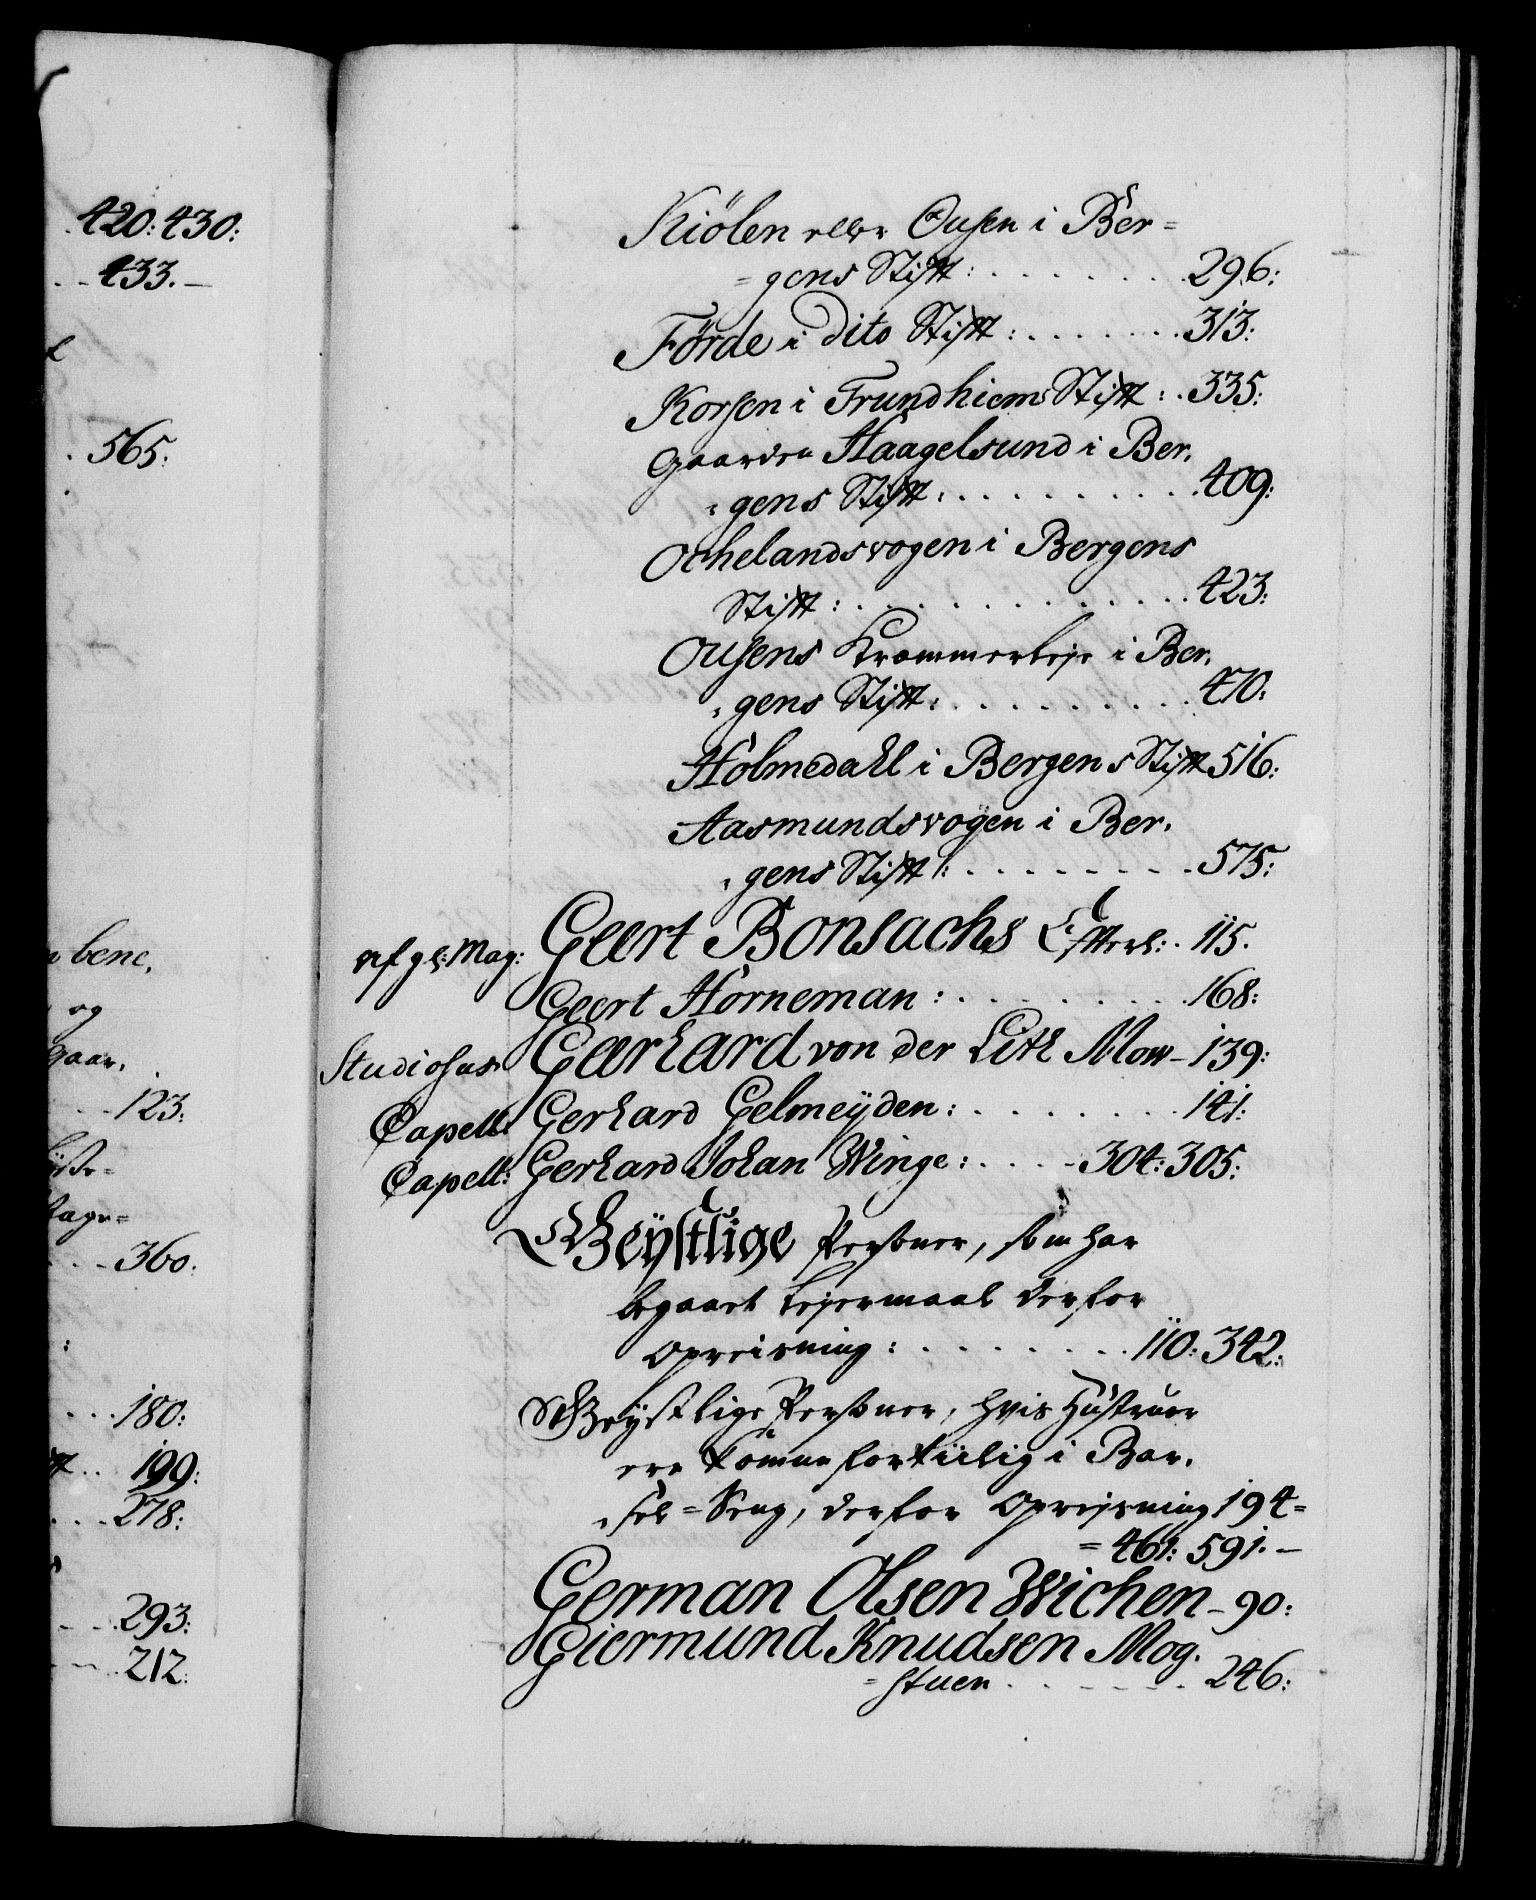 420: 430:
433.
565.
bene,
og
gaar,
123:
360.
180:
199:
278:
293:
212:
Kiölen eller Ousen i Ber=
=gens Stift: 296:
Förde i dito Stift: 313:
Korsen i Trundhiems Stift: 335:
Gaarden Haagelsund i Ber,
,gens Stift: 409:
Ochelandsvogen i Bergens
Stift: 423:
Ousens Krammerleje i Ber,
,gens Stift: 470:
Holmedahl i Bergens Stift 516:
Aasmundsvogen i Ber,
,gens Stift: 575:
afgl: Mag: Geert Bonsachs Efterl: 115.
Geert Horneman: 168:
Studiosus Gerhard von der Lith Mow - 139:
Capell: Gerhard Gelmeyden: 141:
Capell: Gerhard Johan Winge: 304: 305:
Geystlige Personer, som har
begaaet Lejermaal derfor
Opreisning: 110: 342:
Geystlige Personer, hvis Hustruer
ere komne fortiilig i Bar,
,sel=Seng, derfor Oprejsning 194=
=461: 591. -
German Olsen Wichen - 90:
Giermund Knudsen Mog,
=stuen 246: